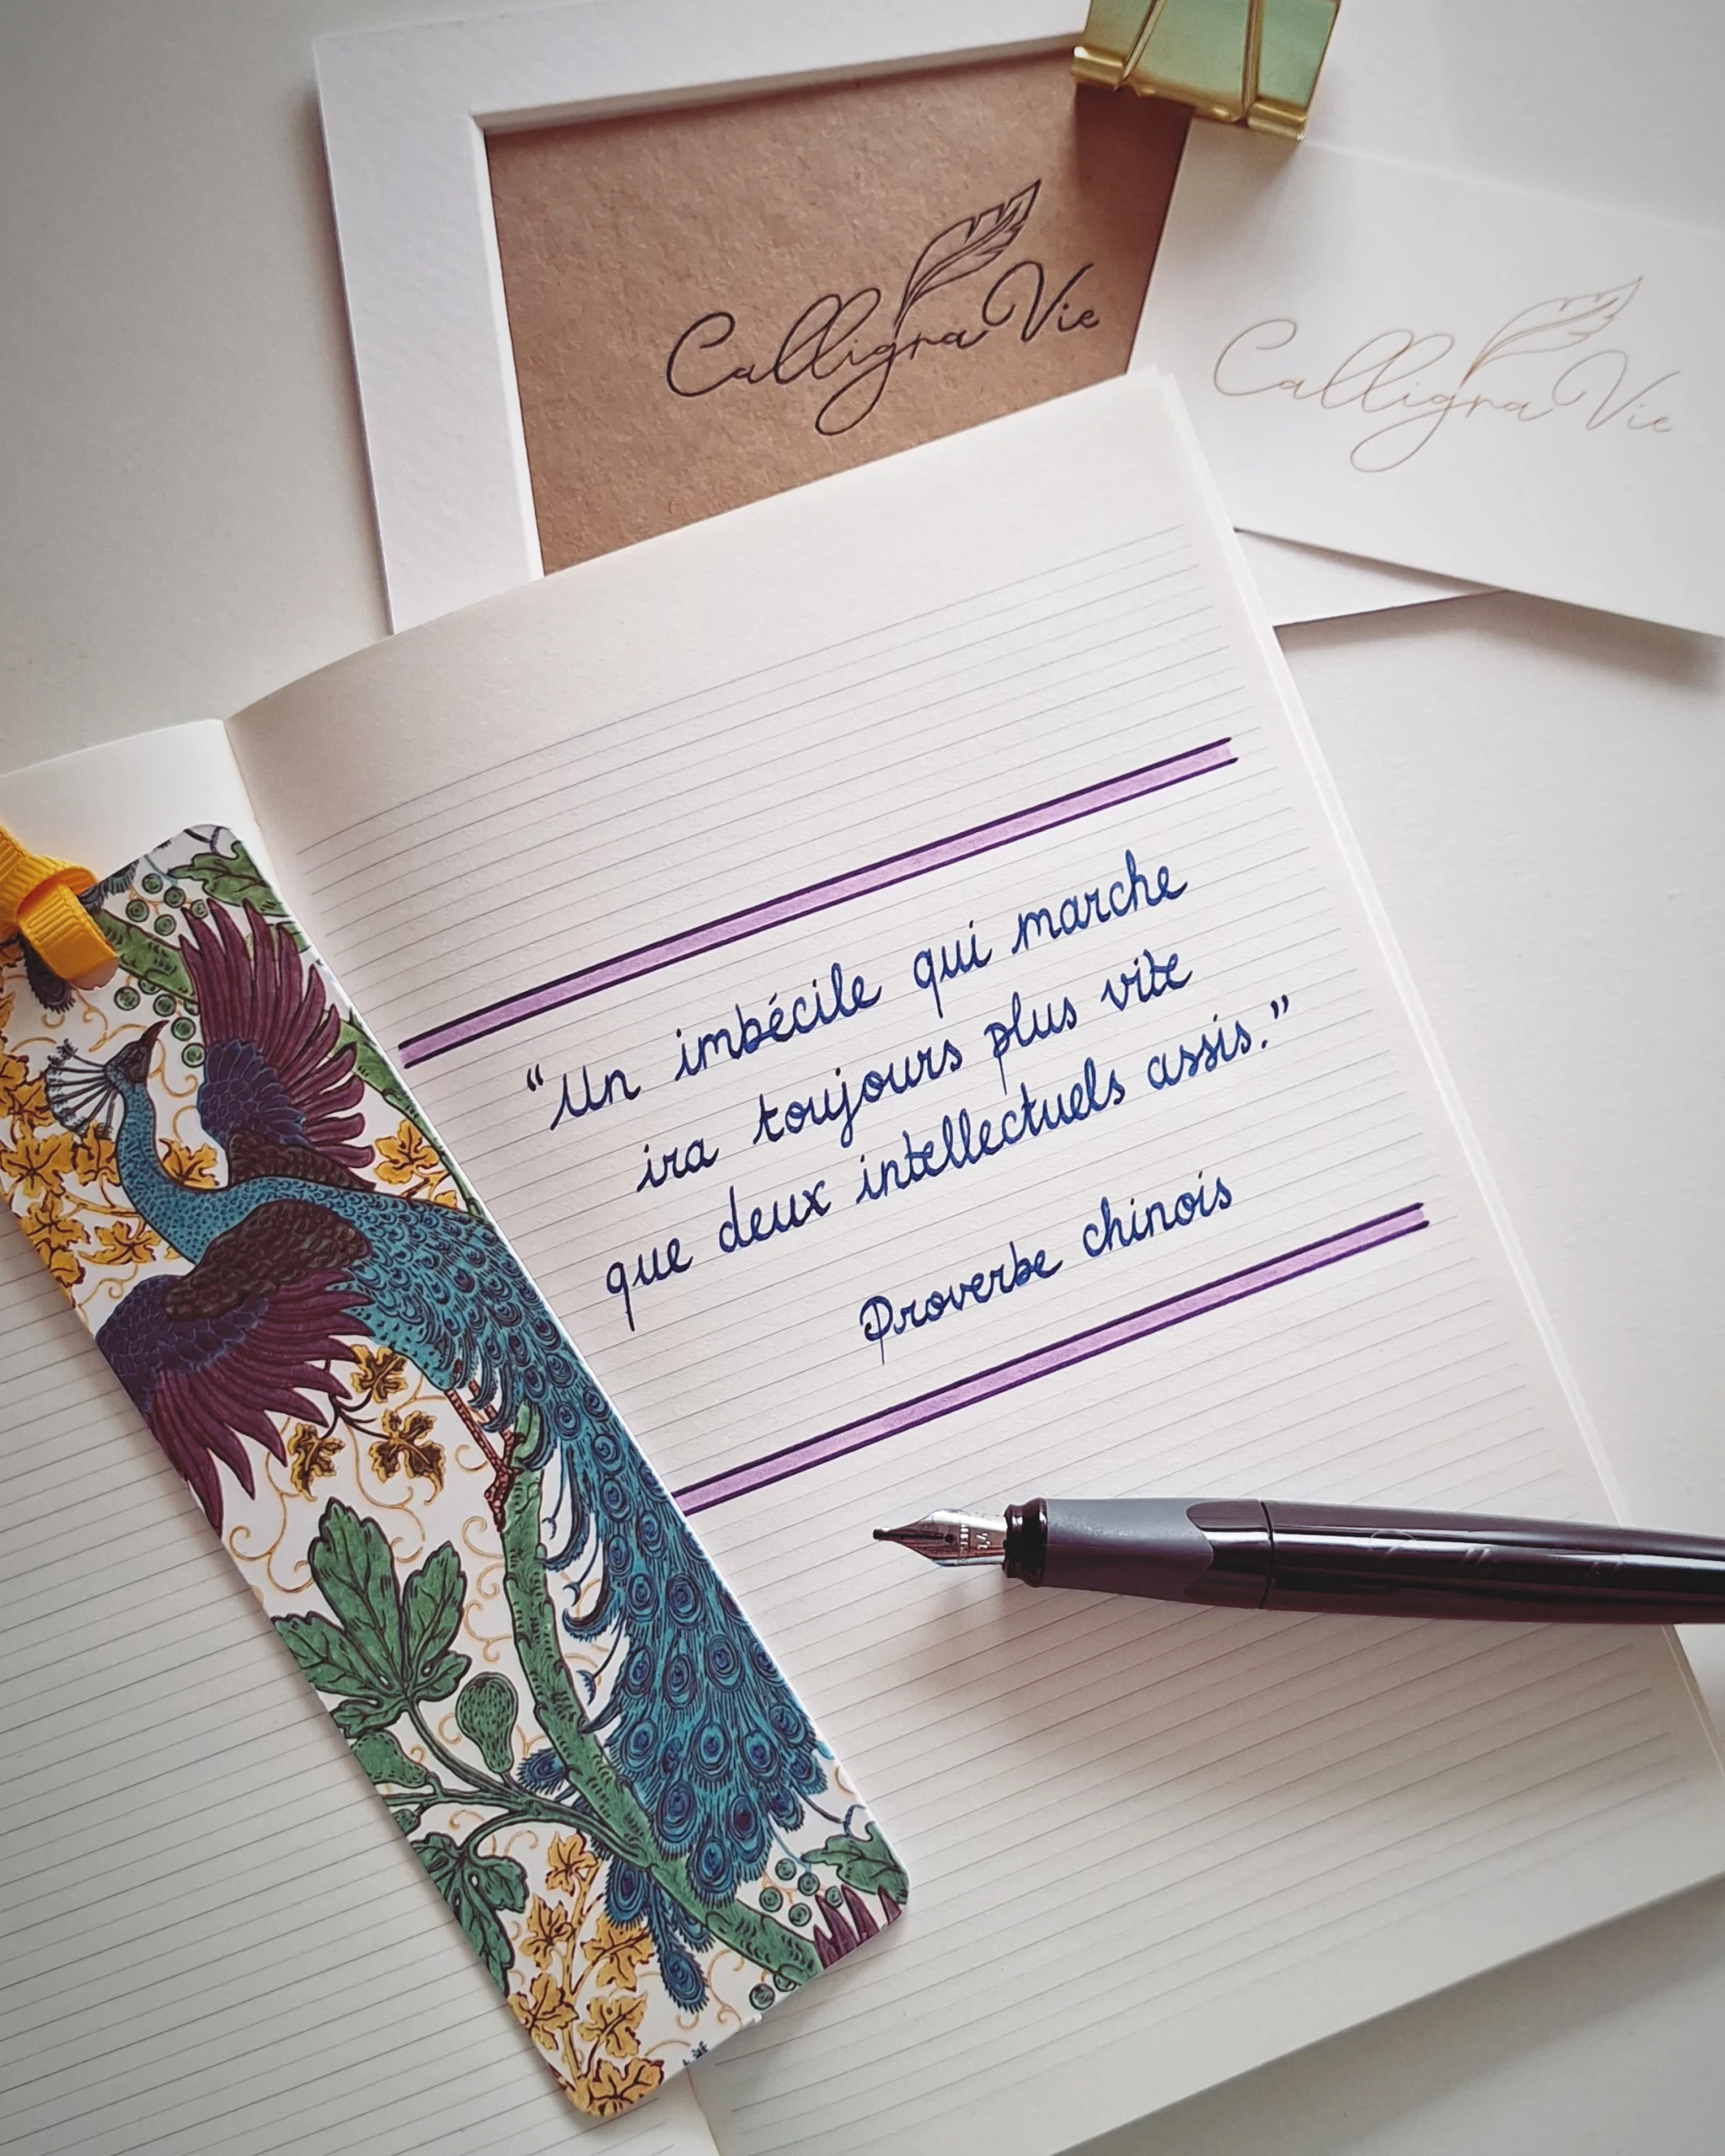 Calligra Vie
Calligra Vie
“Un imbécile qui marche
ira toujours plus vite
que deux intellectuels assis.”
Proverbe chinois